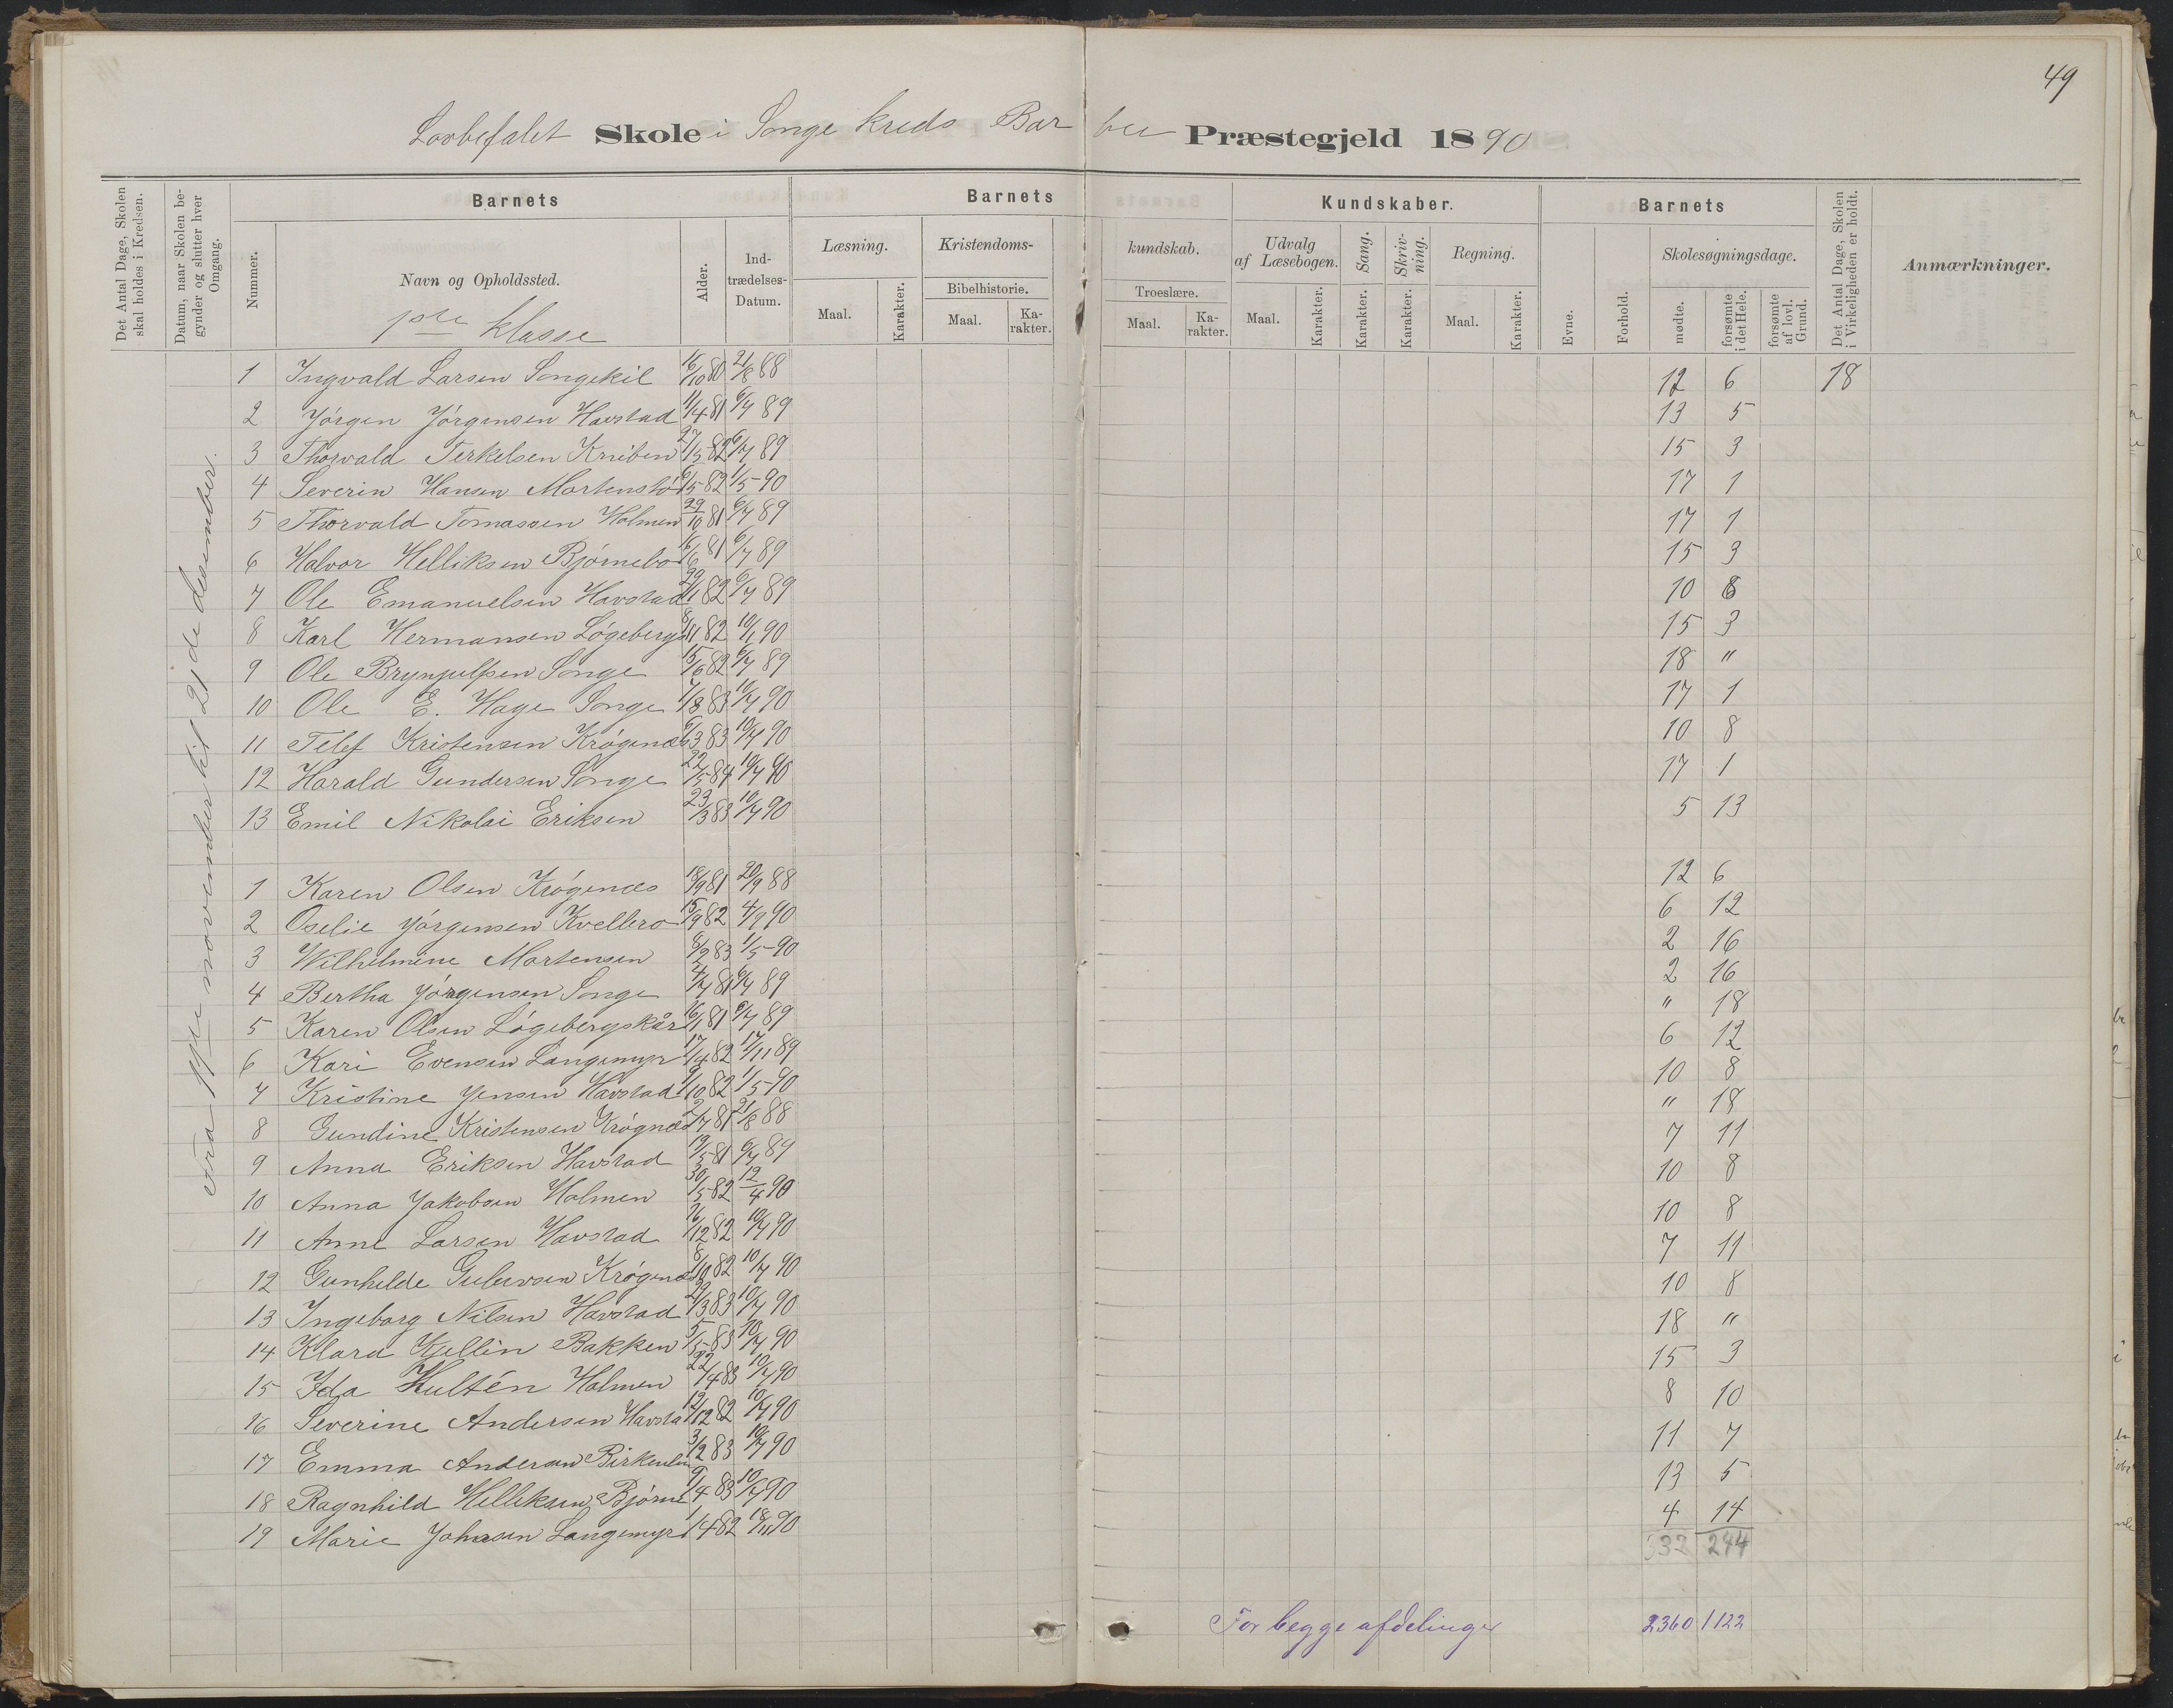 49
Lovbefalet Skole i Songe Kreds Barbu Præstegjeld 1890
Det Antal Dage, Skolen skal holdes i Kredsen.
Datum, naar Skolen begynder og slutter hver Omgang.
Barnets
Nummer.
Navn og Opholdssted.
Alder.
Indtrædelses-Datum.
Barnets
Læsning.
Maal.
Karakter.
Kristendoms-
Bibelhistorie.
Maal.
Karakter.
kundskab.
Troeslære.
Maal.
Karakter.
Kundskaber.
Udvalg af Læsebogen.
Maal.
Karakter.
Sang.
Karakter.
Skrivning.
Karakter.
Regning.
Maal.
Karakter.
Barnets
Evne.
Forhold.
Skolesøgningsdage.
mødte.
forsømte i det Hele.
forsømte af lovl. Grund.
Det Antal Dage, Skolen i Virkeligheden er holdt.
Anmærkninger.
1ste klasse
til 21de desember.
1 Ingvald Larsen Songekil 16/10 80 21/8 88 12 6 18
2 Jörgen Jörgensen Havstad 11/4 81 6/7 89 13 5
3 Thorvald Terkelsen Kniben 27/5 82 6/7 89 15 3
4 Severin Hansen 6/5 82 1/5-90 17 1
5 Thorvald Tomassen Holmen 29/10 81 6/7 89 17 1
6 Halvor Helliksen Bjørnebo 16/6 81 6/7 89 15 3
7 Ole Emanuelsen Havstad 29/1 82 6/7 89 10 8
8 Karl Hermansen Løgeberg 82 90 15 3
9 Ole Brynjulfsen Songe 15/6 82 6/7 89 18 "
10 Ole E. Hage Songe 7/8 83 10/7 90 17 1
11 Telef Kristensen Krøgenæs 6/3 83 10/7 90 10 8
12 Harald Gundersen Songe 22/5 84 10/7 90 17 1
13 Emil Nikolai Eriksen 23/3 83 10/7 90 5 13
1 Karen Olsen Krøgenæs 18/9 81 20/9 88 12 6
2 Oselie Jörgensen Kvellero 15/9 82 4/9 90 6 12
3 Wilhelmine Martensen 8/2 83 1/5-90 2 16
4 Bertha Jörgensen Songe 4/7 81 6/7 89 2 16
5 Karen Olsen Løgebergskår 16/1 81 6/7 89 " 18
6 Kari Evensen Langemyr 17/4 82 17/11 89 6 12
7 Kristine Jensen Havstad 10 82 1/5-90 10 8
8 Gundine Kristensen Krøgnæs 2/7 81 21/8 88 " 18
9 Anna Eriksen Havstad 19/5 81 6/7 89 7 11
10 Anna Jakobsen Holmen 30/5 82 12/4 90 10 8
11 Anne Larsen Havstad 16/12 82 10/7 90 10 8
12 Gunhilde Krøgenæs 8/10 82 10/7 90 7 11
13 Ingeborg Nilsen Havstad 29/3 83 10/7 90 10 8
14 Klara Kjellin Bakken 5/5 83 10/7 90 18 "
15 Ida Hultén Holmen 22/4 83 10/7 90 15 3
16 Severine Andersen Havsta 12/12 82 10/7 90 8 10
17 Emma Andersen 3/2 83 10/7 90 11 7
18 Ragnhild Helliksen Bjørne 9/4 83 10/7 90 13 5
19 Marie Johnsen Langemyr 1/4 82 18/11 90 4 14
332 244
For begge afdelinger 2360 1122